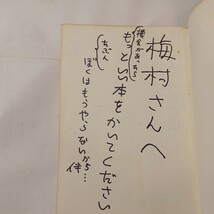 梅村さんへ
機会があったら
もっといい本をかいてください
たぶん
ぼくはもうやらないから…
伴